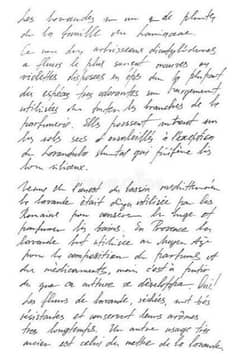 Les lavandes un genre de plantes
de la famille des lamiacées
Ce sont des arbrisseaux dicotylédones
à fleurs le plus souvent mauves ou
violettes disposées en épis dont la plupart
des espèces, très odorantes sont largement
utilisées dans toutes les branches de la
parfumerie. Elles poussent surtout sur
les sols secs et ensoleillés à l'exception
de lavandula stoechas qui préfère les
sols siliceux.
Venue de l'ouest du bassin méditerranéen
la lavande était déjà utilisée par les
Romains pour conserver le linge et
parfumer les bains. En Provence la
lavande fut utilisée au Moyen Age
pour la composition de parfums et
de médicaments, mais c'est à partir
du que sa culture se développa.
Les fleurs de lavande, séchées, sont très
résistantes et conservent leurs arômes
très longtemps. Un autre usage très
ancien est celui de mettre de la lavande